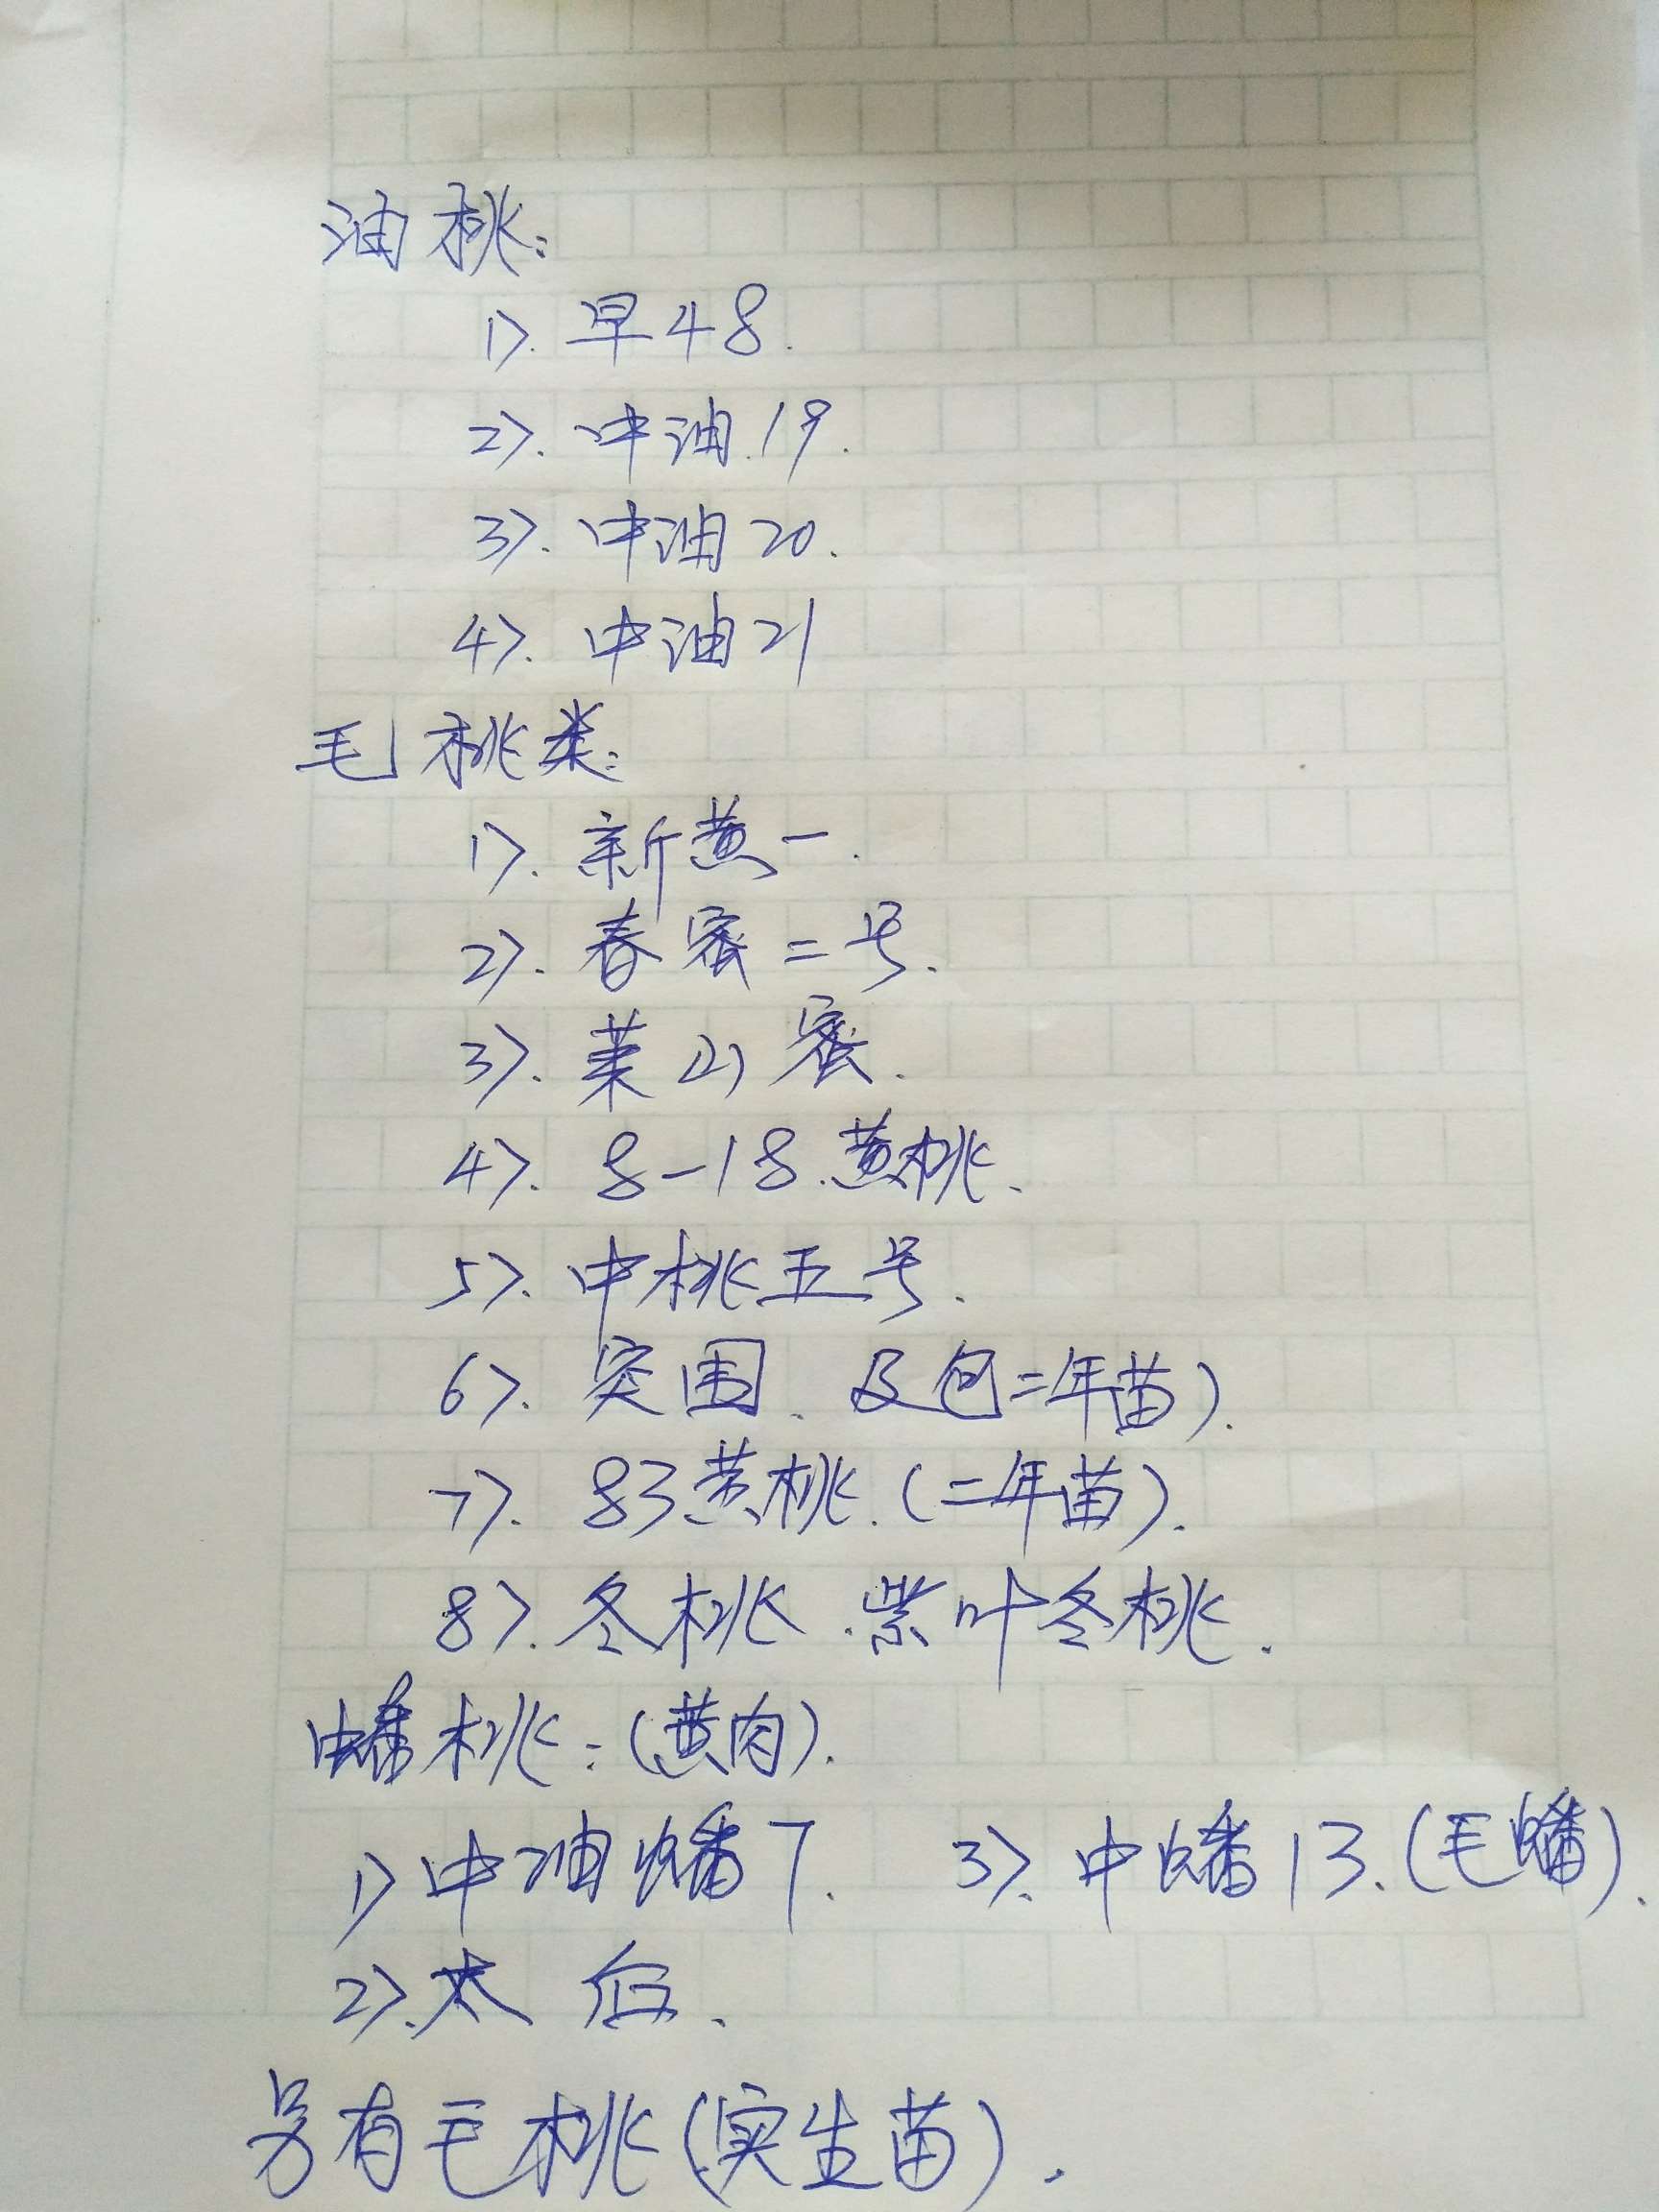 油桃:
1>. 早48.
2>. 中油.19.
3>. 中油20.
4>. 中油21
毛桃类:
1>. 新黄一.
2>. 春蜜二号.
3>. 莱山蜜.
4>. 8-18.黄桃.
5>. 中桃五号.
6>. 突围、及包二年苗).
7>. 83黄桃.(二年苗).
8>. 冬桃.紫叶冬桃.
蟠桃:(黄肉).
1>中油蟠7. 3>.中蟠13.(毛蟠).
2>.太后.
另有毛桃(实生苗).